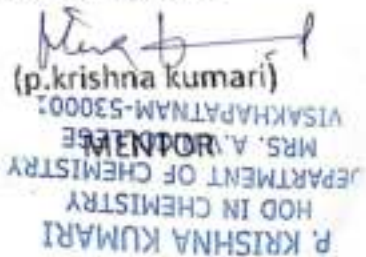 (p.krishna kumari)
MENTOR
P. KRISHNA KUMARI
HOD IN CHEMISTRY
DEPARTMENT OF CHEMISTRY
MRS. A.V. COLLEGE
VISAKHAPATNAM-530001